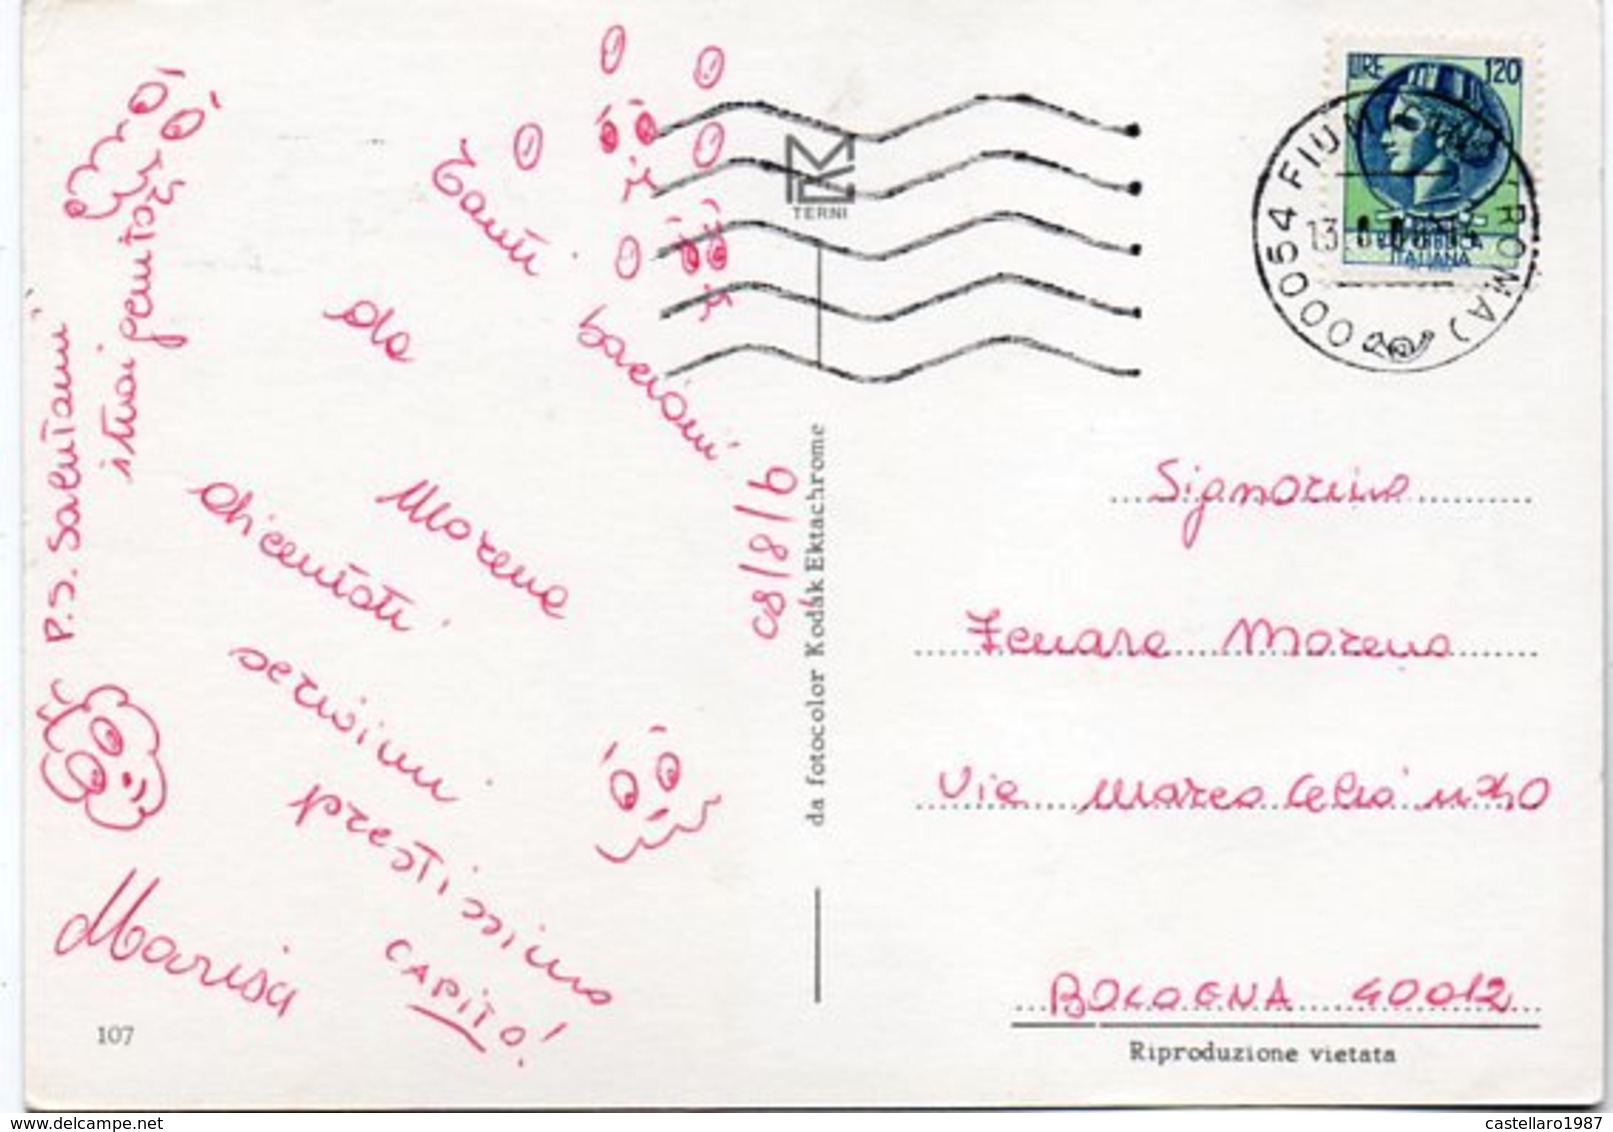 Tanti bacioni
da Morena
dicentati
scrivimi
prestissimo
CAPITO!
Marisa
P.S. Salutami
i tuoi genitori
107
TERNI
da fotocolor Kodak Ektachrome
LIRE 120
REPUBBLICA
ITALIANA
00054 FIUM (ROMA)
13.8
Signorina
Morena
Via Marco Celio
BOLOGNA 40012
Riproduzione vietata
castellaro1987